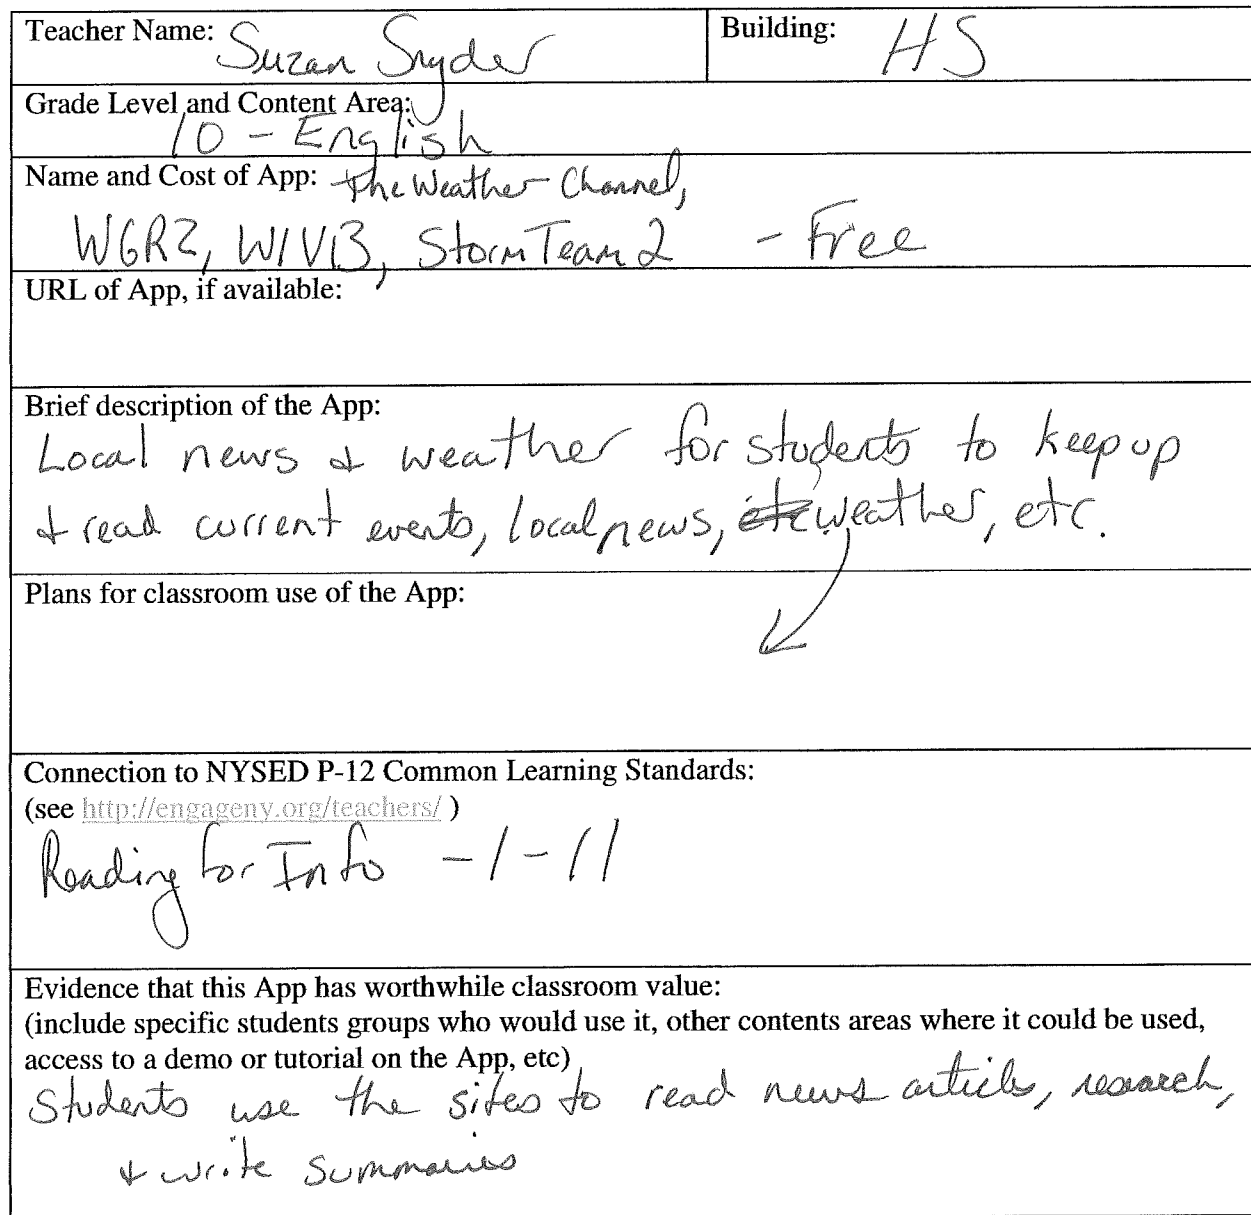 Teacher Name: Suzan Snyder Building: HS
Grade Level and Content Area:
10 - English
Name and Cost of App: The Weather Channel,
WGRZ, WIVB, StormTeam 2 - Free
URL of App, if available:
Brief description of the App:
Local news & weather for students to keep up
& read current events, local news, etc weather, etc.
Plans for classroom use of the App:
Connection to NYSED P-12 Common Learning Standards:
(see http://engageny.org/teachers/ )
Reading for Info -1-11
Evidence that this App has worthwhile classroom value:
(include specific students groups who would use it, other contents areas where it could be used,
access to a demo or tutorial on the App, etc)
Students use the sites to read news articles, research,
& write summaries